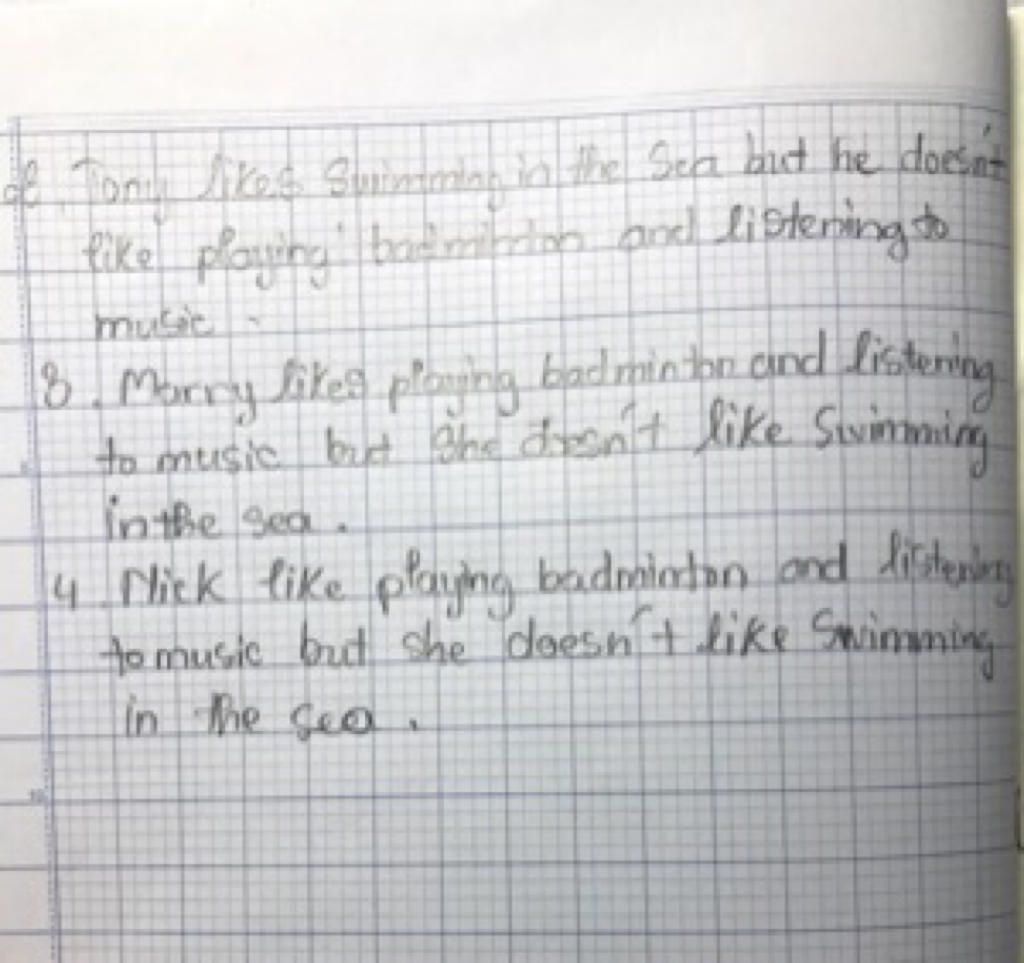 2. Tony likes Swimming in the Sea but he doesn't
like playing badminton and listening to
music.
3. Marry likes playing badminton and listening
to music but She doesn't like Swimming
in the sea.
4 Nick like playing badminton and listening
to music but she doesn't like Swimming
in the sea.